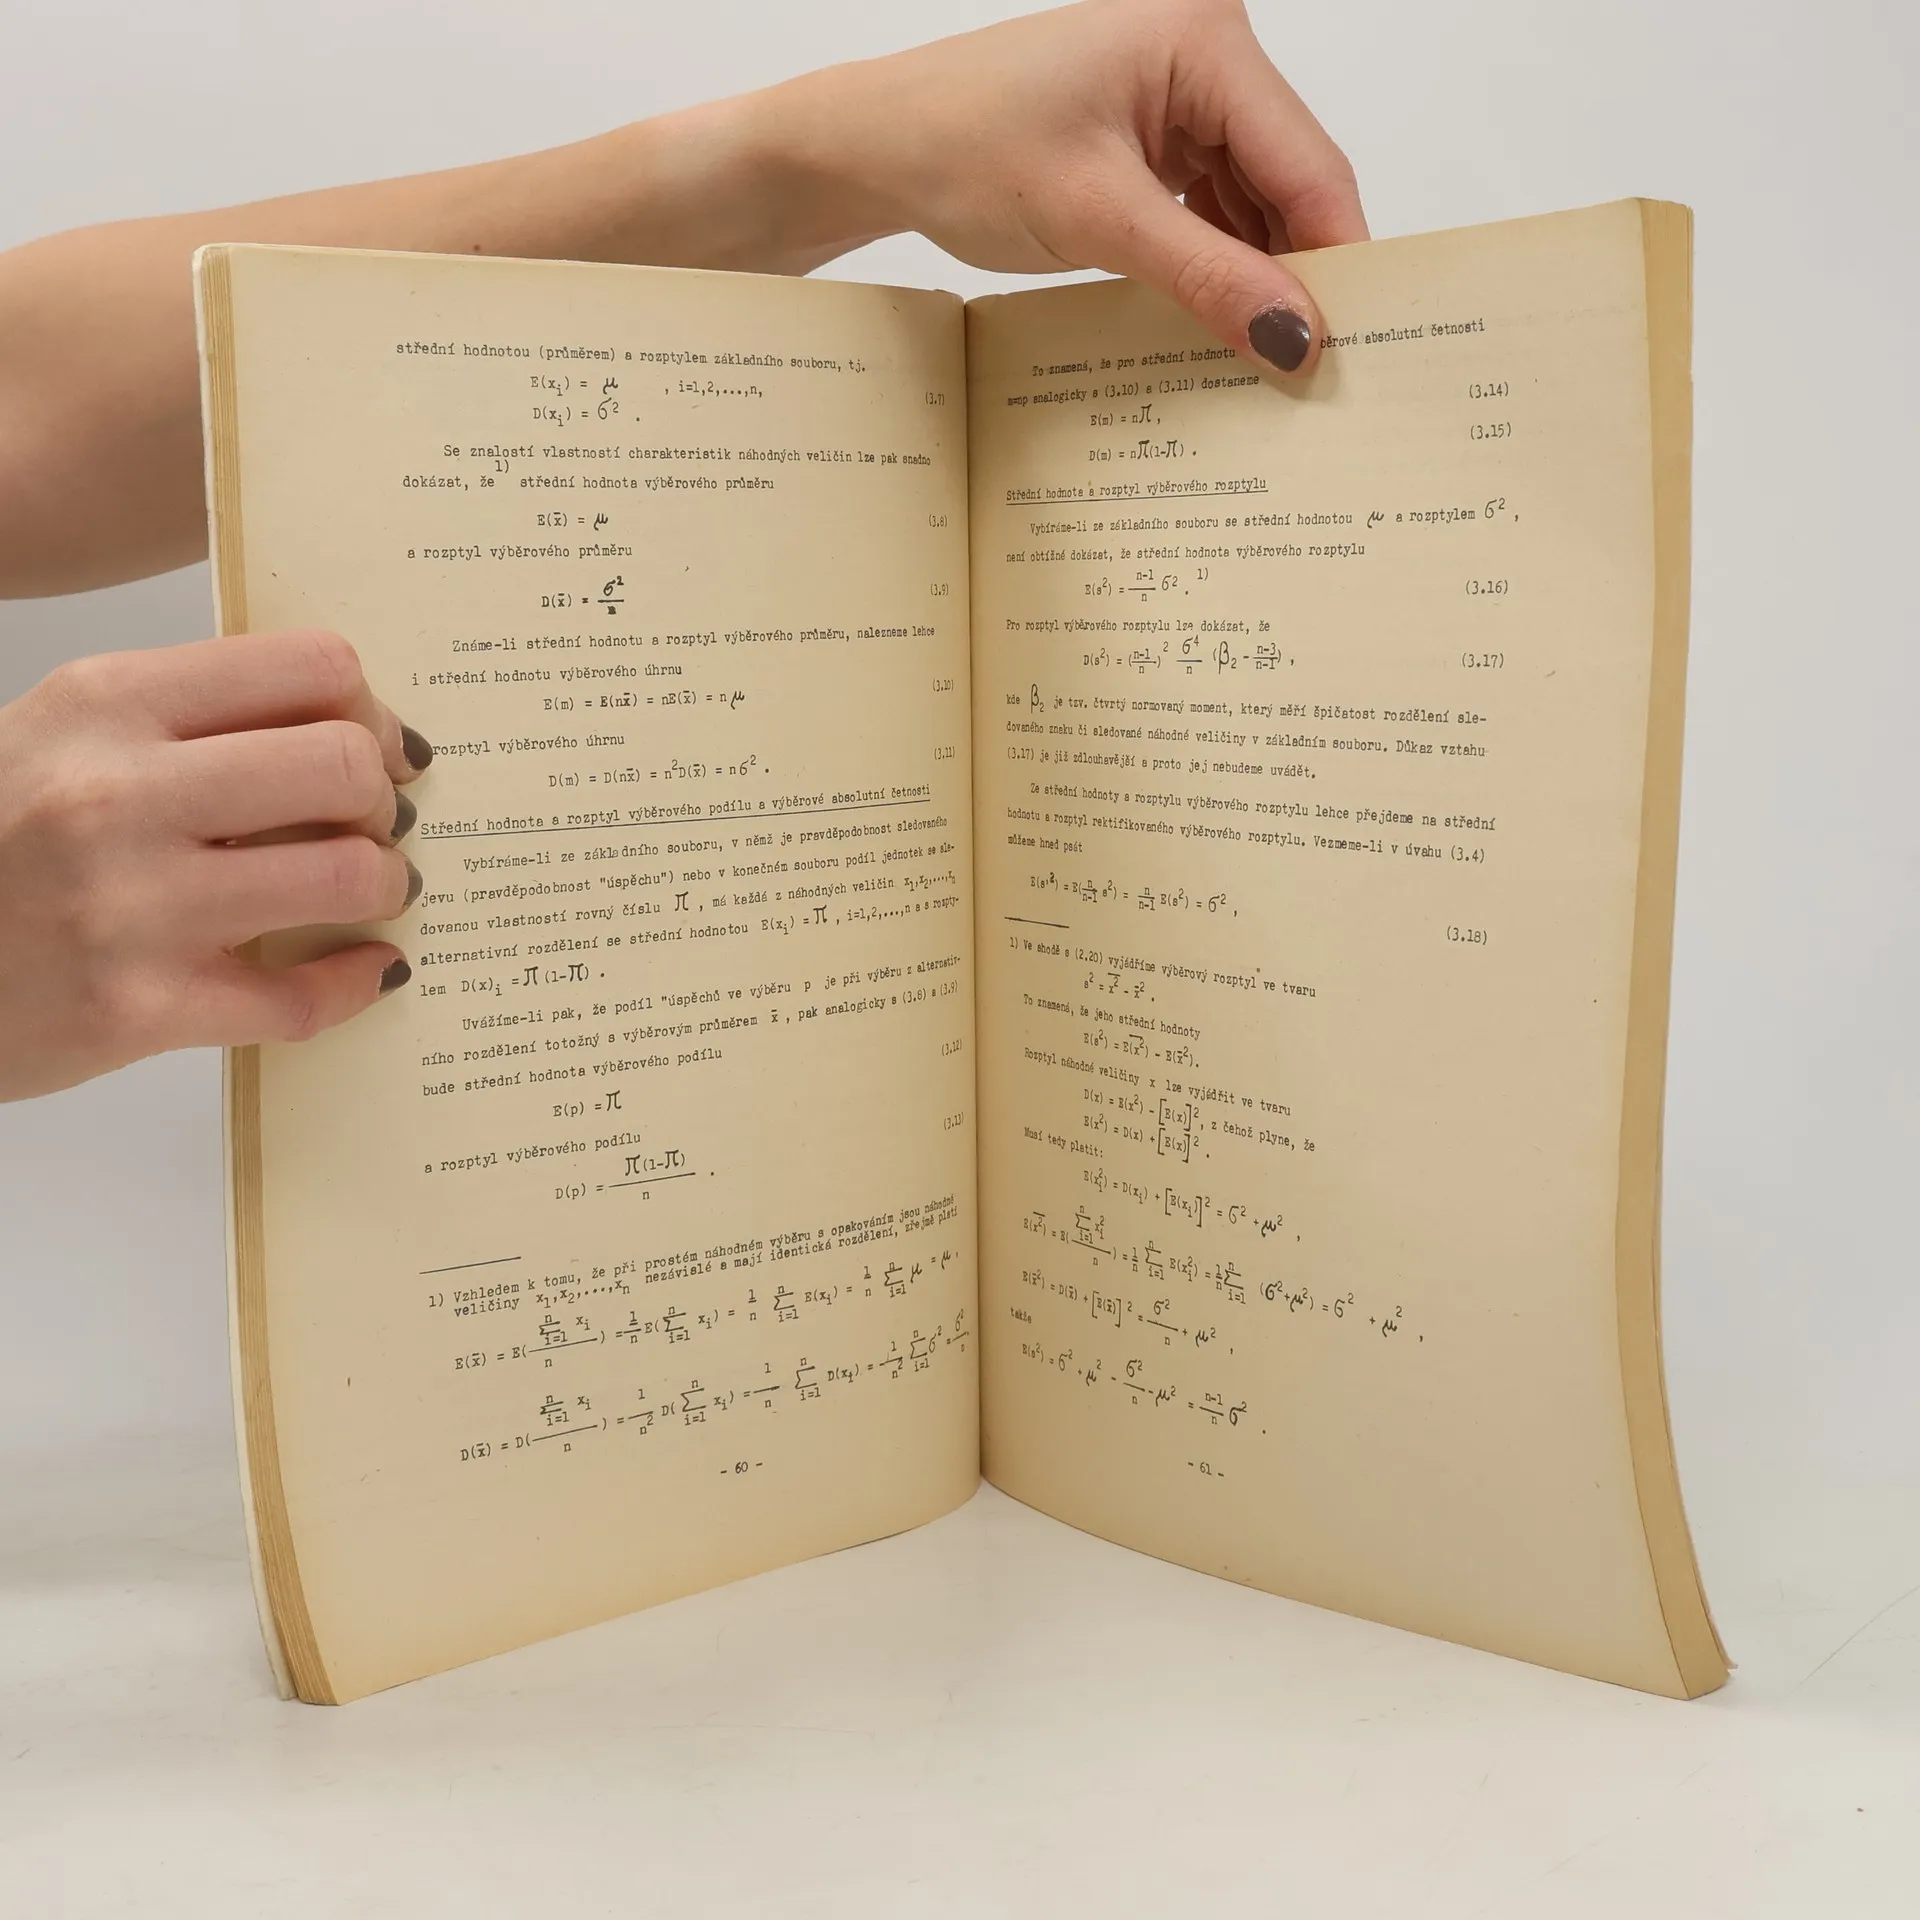 střední hodnotou (průměrem) a rozptylem základního souboru, tj.
E(xᵢ) = μ , i=1,2,...,n,
D(xᵢ) = σ² . (3.7)
Se znalostí vlastností charakteristik náhodných veličin lze pak snadno
dokázat, že¹⁾ střední hodnota výběrového průměru
E(x̄) = μ (3.8)
a rozptyl výběrového průměru
D(x̄) = σ²/n (3.9)
Známe-li střední hodnotu a rozptyl výběrového průměru, nalezneme lehce
i střední hodnotu výběrového úhrnu
E(m) = E(nx̄) = nE(x̄) = nμ (3.10)
rozptyl výběrového úhrnu
D(m) = D(nx̄) = n²D(x̄) = nσ² . (3.11)
Střední hodnota a rozptyl výběrového podílu a výběrové absolutní četnosti
Vybíráme-li ze základního souboru, v němž je pravděpodobnost sledovaného
jevu (pravděpodobnost "úspěchu") nebo v konečném souboru podíl jednotek se sle-
dovanou vlastností rovný číslu π , má každá z náhodných veličin x₁,x₂,...,xₙ
alternativní rozdělení se střední hodnotou E(xᵢ) = π , i=1,2,...,n a s rozpty-
lem D(x)ᵢ = π(1-π) .
Uvážíme-li pak, že podíl "úspěchů ve výběru p je při výběru z alternativ-
ního rozdělení totožný s výběrovým průměrem x̄ , pak analogicky s (3.8) a (3.9)
bude střední hodnota výběrového podílu (3.12)
E(p) = π
a rozptyl výběrového podílu (3.13)
D(p) = π(1-π)/n .
1) Vzhledem k tomu, že při prostém náhodném výběru s opakováním jsou náhodné
veličiny x₁,x₂,...,xₙ nezávislé a mají identická rozdělení, zřejmě platí
E(x̄) = E(∑ⁿᵢ₌₁ xᵢ / n) = 1/n E(∑ⁿᵢ₌₁ xᵢ) = 1/n ∑ⁿᵢ₌₁ E(xᵢ) = 1/n ∑ⁿᵢ₌₁ μ = μ ,
D(x̄) = D(∑ⁿᵢ₌₁ xᵢ / n) = 1/n² D(∑ⁿᵢ₌₁ xᵢ) = 1/n ∑ⁿᵢ₌₁ D(xᵢ) = 1/n² ∑ⁿᵢ₌₁ σ² = σ²/n
- 60 -
To znamená, že pro střední hodnotu běrové absolutní četnosti
m=np analogicky s (3.10) a (3.11) dostaneme
E(m) = nπ , (3.14)
D(m) = nπ(1-π) . (3.15)
Střední hodnota a rozptyl výběrového rozptylu
Vybíráme-li ze základního souboru se střední hodnotou μ a rozptylem σ² ,
není obtížné dokázat, že střední hodnota výběrového rozptylu
E(s²) = n-1/n σ² . ¹⁾ (3.16)
Pro rozptyl výběrového rozptylu lze dokázat, že
D(s²) = (n-1/n)² σ⁴/n (β₂ - n-3/n-1) , (3.17)
kde β₂ je tzv. čtvrtý normovaný moment, který měří špičatost rozdělení sle-
dovaného znaku či sledované náhodné veličiny v základním souboru. Důkaz vztahu
(3.17) je již zdlouhavější a proto jej nebudeme uvádět.
Ze střední hodnoty a rozptylu výběrového rozptylu lehce přejdeme na střední
hodnotu a rozptyl rektifikovaného výběrového rozptylu. Vezmeme-li v úvahu (3.4)
můžeme hned psát
E(s'²) = E(n/n-1 s²) = n/n-1 E(s²) = σ² , (3.18)
1) Ve shodě s (2.20) vyjádříme výběrový rozptyl ve tvaru
s² = x̅²̅ - x̄² .
To znamená, že jeho střední hodnoty
E(s²) = E(x̅²̅) - E(x̄²).
Rozptyl náhodné veličiny x lze vyjádřit ve tvaru
D(x) = E(x²) - [E(x)]² , z čehož plyne, že
E(x²) = D(x) + [E(x)]² .
Musí tedy platit:
E(xᵢ²) = D(xᵢ) + [E(xᵢ)]² = σ² + μ² ,
E(x̅²̅) = E(∑ⁿᵢ₌₁ xᵢ² / n) = 1/n ∑ⁿᵢ₌₁ E(xᵢ²) = 1/n ∑ⁿᵢ₌₁ (σ²+μ²) = σ² + μ² ,
E(x̄²) = D(x̄) + [E(x̄)]² = σ²/n + μ² ,
takže
E(s²) = σ² + μ² - σ²/n - μ² = n-1/n σ² .
- 61 -